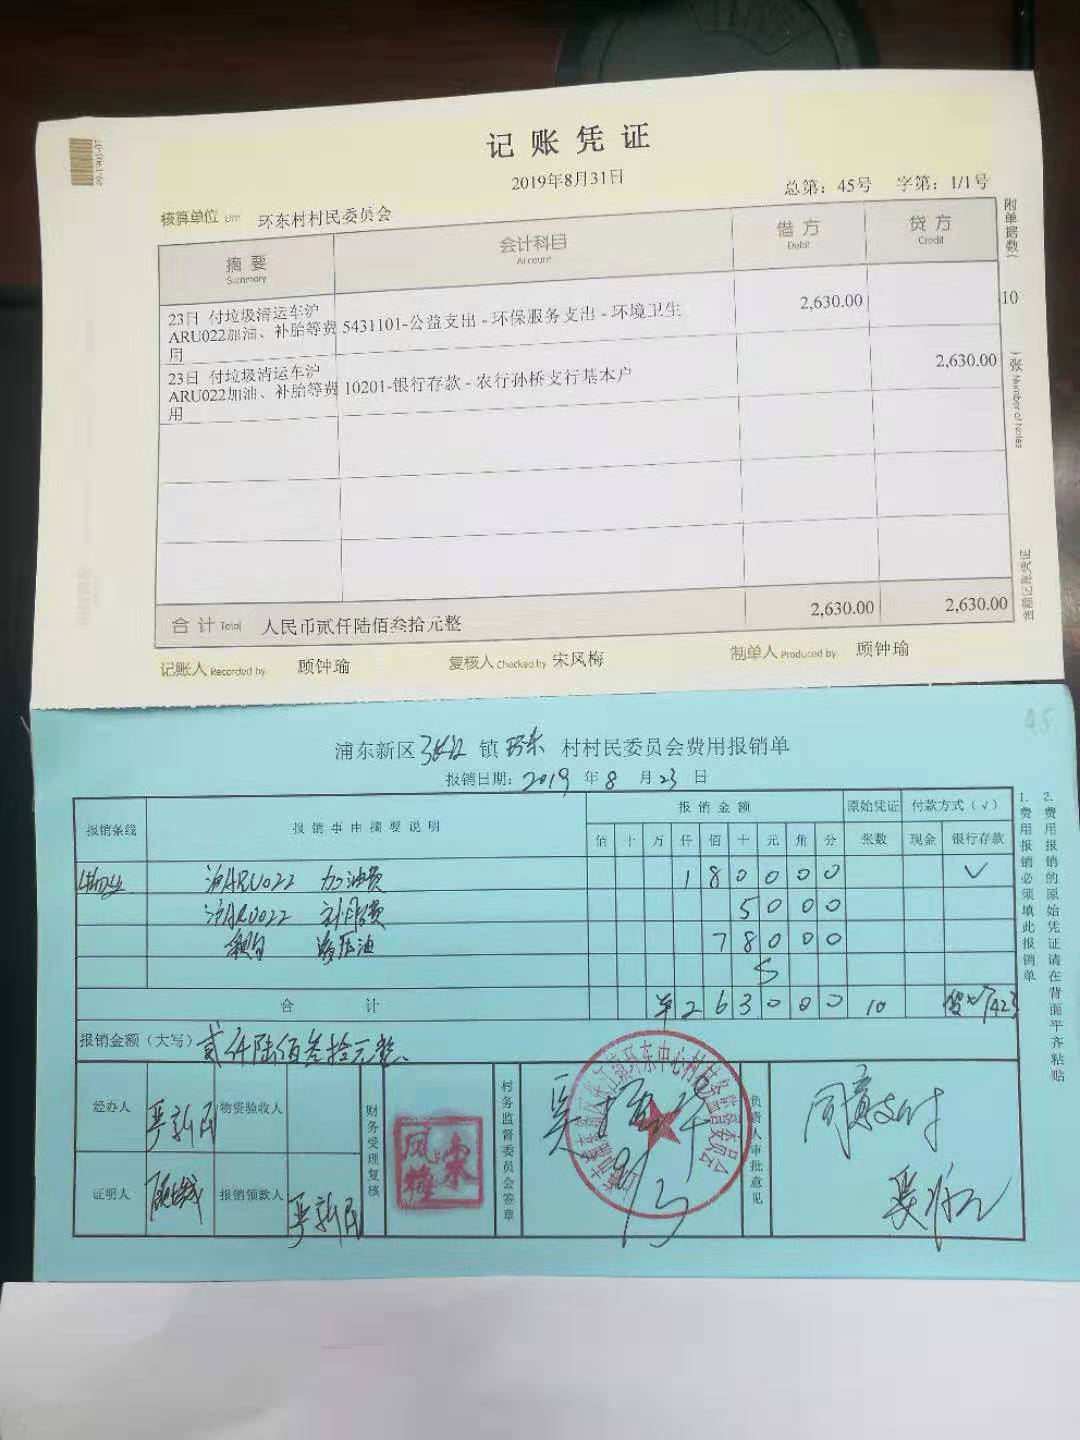 记账凭证
2019年8月31日
总第：45号 字第：1/1号
核算单位 Unit 环东村村民委员会
附单据数( 10 )张 Number of Notes
摘要 Summary 会计科目 Account 借方 Debit 贷方 Credit
23日 付垃圾清运车沪ARU022加油、补胎等费用 5431101-公益支出 - 环保服务支出 - 环境卫生 2,630.00
23日 付垃圾清运车沪ARU022加油、补胎等费用 10201-银行存款 - 农行孙桥支行基本户 2,630.00
合计 Total 人民币贰仟陆佰叁拾元整 2,630.00 2,630.00
金额记账凭证
记账人 Recorded by 顾钟瑜 复核人 Checked by 宋凤梅 制单人 Produced by 顾钟瑜
45
浦东新区张江镇环东村村民委员会费用报销单
报销日期：2019年8月23日
报销条线 报销事由摘要说明 报销金额 原始凭证张数 付款方式（√）
佰 十 万 仟 佰 十 元 角 分 现金 银行存款
沪ARU022 加油费 1 8 0 0 0 0 √
沪ARU022 补胎费 5 0 0 0
液压油 7 8 0 0 0
合计 ¥ 2 6 3 0 0 0 10
报销金额（大写）贰仟陆佰叁拾元整
经办人 严新民 物资验收人 财务受理复核 宋凤梅 村务监督委员会签章 负责人审批意见 同意支付
证明人 报销领款人 严新民
1. 费用报销必须填此报销单
2. 费用报销的原始凭证请在背面平齐粘贴